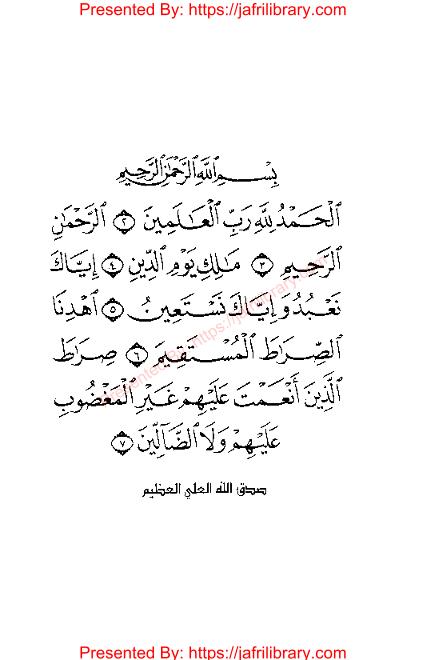 Presented By: https://jafrilibrary.com
بِسْمِ اللَّهِ الرَّحْمَٰنِ الرَّحِيمِ
الْحَمْدُ لِلَّهِ رَبِّ الْعَالَمِينَ ﴿٢﴾ الرَّحْمَٰنِ
الرَّحِيمِ ﴿٣﴾ مَالِكِ يَوْمِ الدِّينِ ﴿٤﴾ إِيَّاكَ
نَعْبُدُ وَإِيَّاكَ نَسْتَعِينُ ﴿٥﴾ اهْدِنَا
الصِّرَاطَ الْمُسْتَقِيمَ ﴿٦﴾ صِرَاطَ
الَّذِينَ أَنْعَمْتَ عَلَيْهِمْ غَيْرِ الْمَغْضُوبِ
عَلَيْهِمْ وَلَا الضَّالِّينَ ﴿٧﴾
صدق الله العلي العظيم
Presented By: https://jafrilibrary.com
Presented By: https://jafrilibrary.com